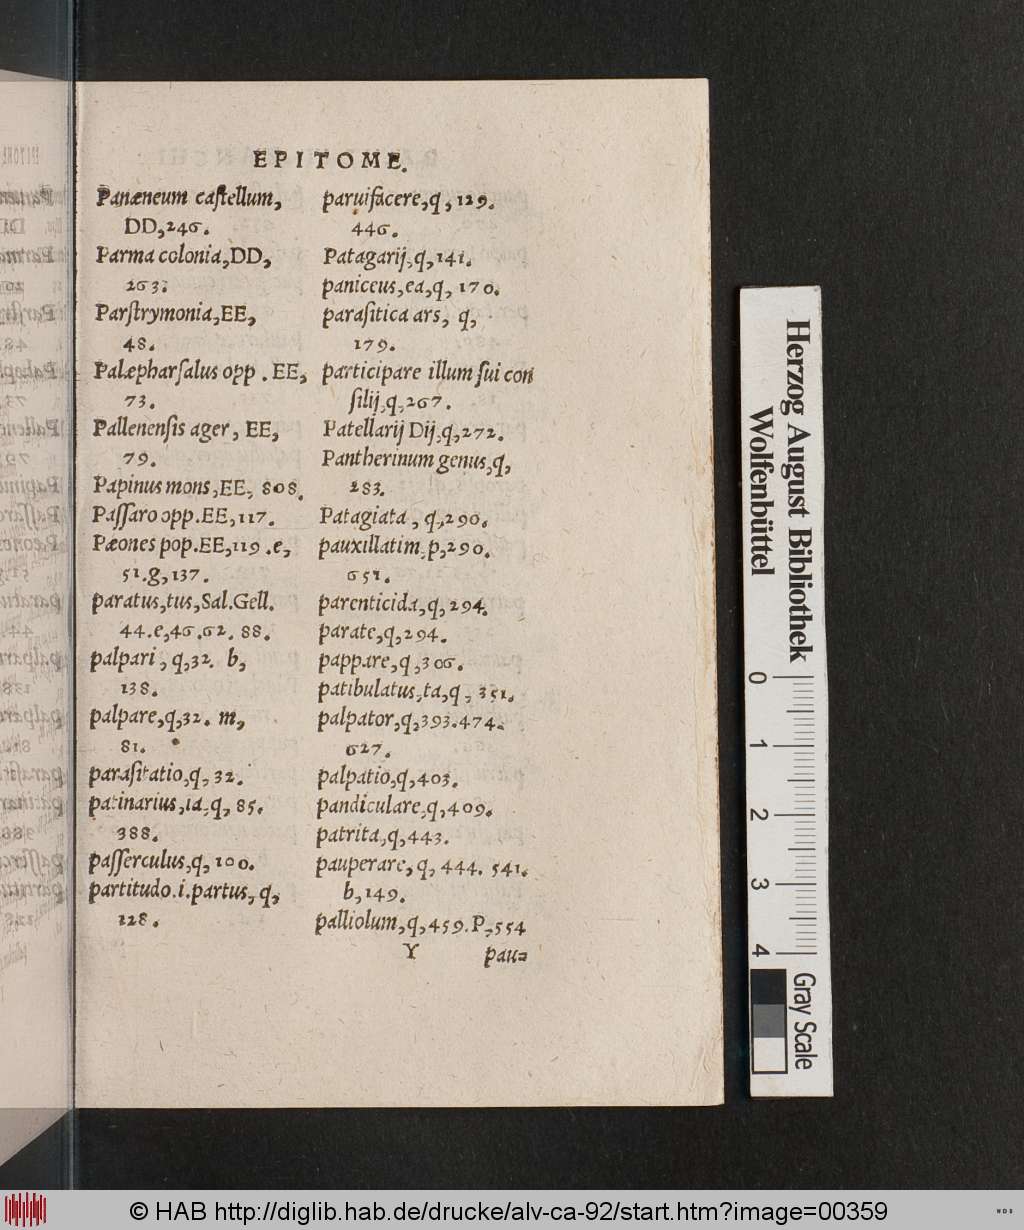 EPITOME.
Panæneum castellum,
DD,246.
Parma colonia,DD,
263.
Parſtrymonia,EE,
48.
Palæpharſalus opp. EE,
73.
Pallenenſis ager, EE,
79.
Papinus mons,EE, 808.
Paſſaro opp.EE,117.
Pæones pop.EE,119.e,
51.g,137.
paratus,tus,Sal.Gell.
44.e,46.62. 88.
palpari, q,32. b,
138.
palpare,q,32. m,
81.
paraſitatio,q, 32.
patinarius,ia,q, 85.
388.
paſſerculus,q, 100.
partitudo.i.partus, q,
128.
paruifacere,q, 129.
446.
Patagarij,q,141.
paniceus,ea,q, 170.
paraſitica ars, q,
179.
participare illum ſui con
ſilij,q,267.
Patellarij Dij,q,272.
Pantherinum genus,q,
283.
Patagiata, q,290.
pauxillatim,p,290.
651.
parenticida,q, 294.
parate,q,294.
pappare,q,306.
patibulatus,ta,q, 351.
palpator,q,393.474.
627.
palpatio,q,403.
pandiculare,q,409.
patrita,q,443.
pauperare, q, 444. 541.
b,149.
palliolum,q,459.P,554
Y pau=
Herzog August Bibliothek
Wolfenbüttel
0 1 2 3 4
Gray Scale
© HAB http://diglib.hab.de/drucke/alv-ca-92/start.htm?image=00359